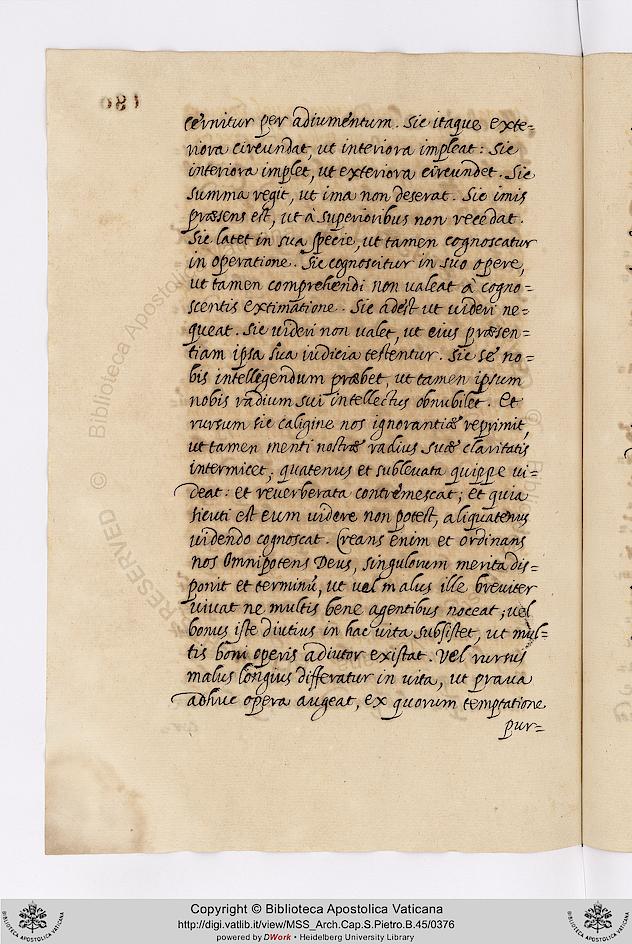 cernitur per adiumentum. Sic itaque exte=
riora circundat, ut interiora impleat: Sic
interiora implet, ut exteriora circundet. Sic
summa regit, ut ima non deserat. Sic imis
præsens est, ut à superioribus non recédat.
Sic latet in sua specie, ut tamen cognoscatur
in operatione. Sic cognoscitur in suo opere,
ut tamen comprehendi non valeat à cogno=
scentis extimatione. Sic adest ut uideri ne=
queat. Sic uideri non valet, ut eius præsen=
tiam ipsa sua iudicia testentur. Sic se no=
bis intellegendum præbet, ut tamen ipsum
nobis radium sui intellectus obnubilet. Et
rursum sic caligine nos ignorantiæ reprimit,
ut tamen menti nostræ radius suæ claritatis
intermicet, quatenus et subleuata quippe ui=
deat: et reuerberata contremescat; et quia
sicuti est eum uidere non potest, aliquatenus
uidendo cognoscat. Creans enim et ordinans
nos Omnipotens Deus, singulorum merita dis=
ponit et terminū, ut vel malus ille breuiter
uiuat ne multis bene agentibus noceat; vel
bonus iste diutius in hac uita subsistet, ut mul=
tis boni operis adiutor existat. Vel rursus
malus longius differatur in uita, ut praua
adhuc opera augeat, ex quorum temptatione
pur=
180
© Biblioteca Apostolica
RESERVED
Copyright © Biblioteca Apostolica Vaticana
http://digi.vatlib.it/view/MSS_Arch.Cap.S.Pietro.B.45/0376
powered by DWork • Heidelberg University Library